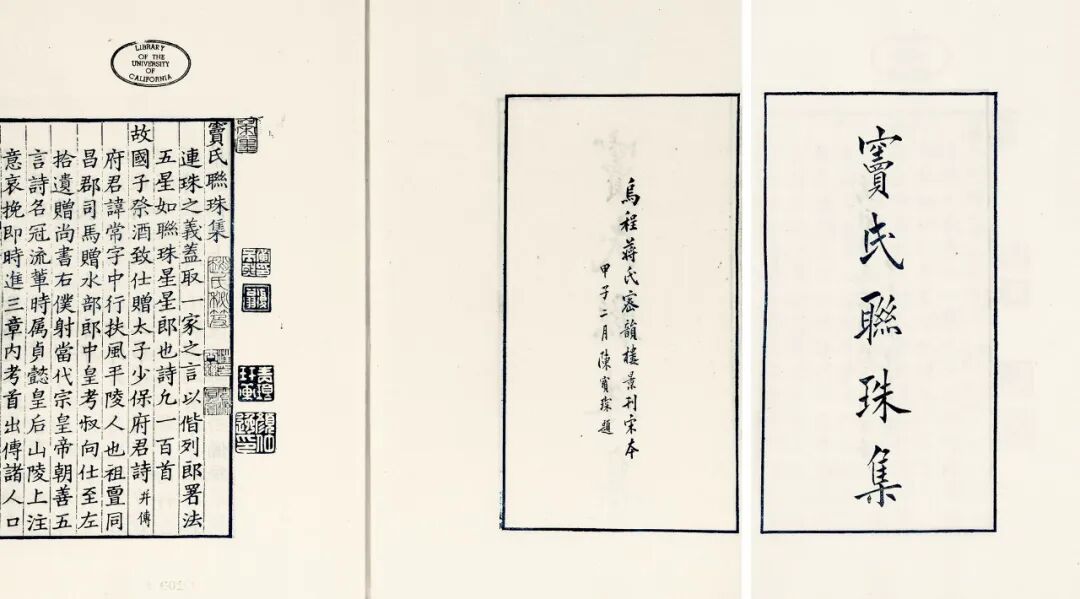 竇氏聯珠集
烏程蔣氏密韻樓景刊宋本
甲子二月陳寳琛題
LIBRARY
OF THE
UNIVERSITY
OF
CALIFORNIA
竇氏聯珠集
連珠之義蓋取一家之言以偕列郎署法
五星如聯珠星星郎也詩凢一百首
故國子祭酒致仕贈太子少保府君詩并傳
府君諱常字中行扶風平陵人也祖亶同
昌郡司馬贈水部郎中皇考叔向仕至左
拾遺贈尚書右僕射當代宗皇帝朝善五
言詩名冠流輩時属貞懿皇后山陵上注
意哀挽即時進三章内考首出傳諸人口